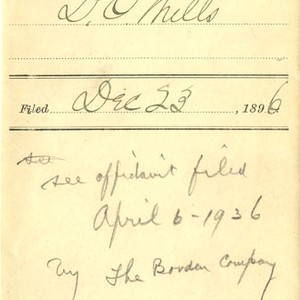 D. O. Mills
Filed Dec 23, 1896
see
see affidavit filed
April 6-1936
by The Borden Company